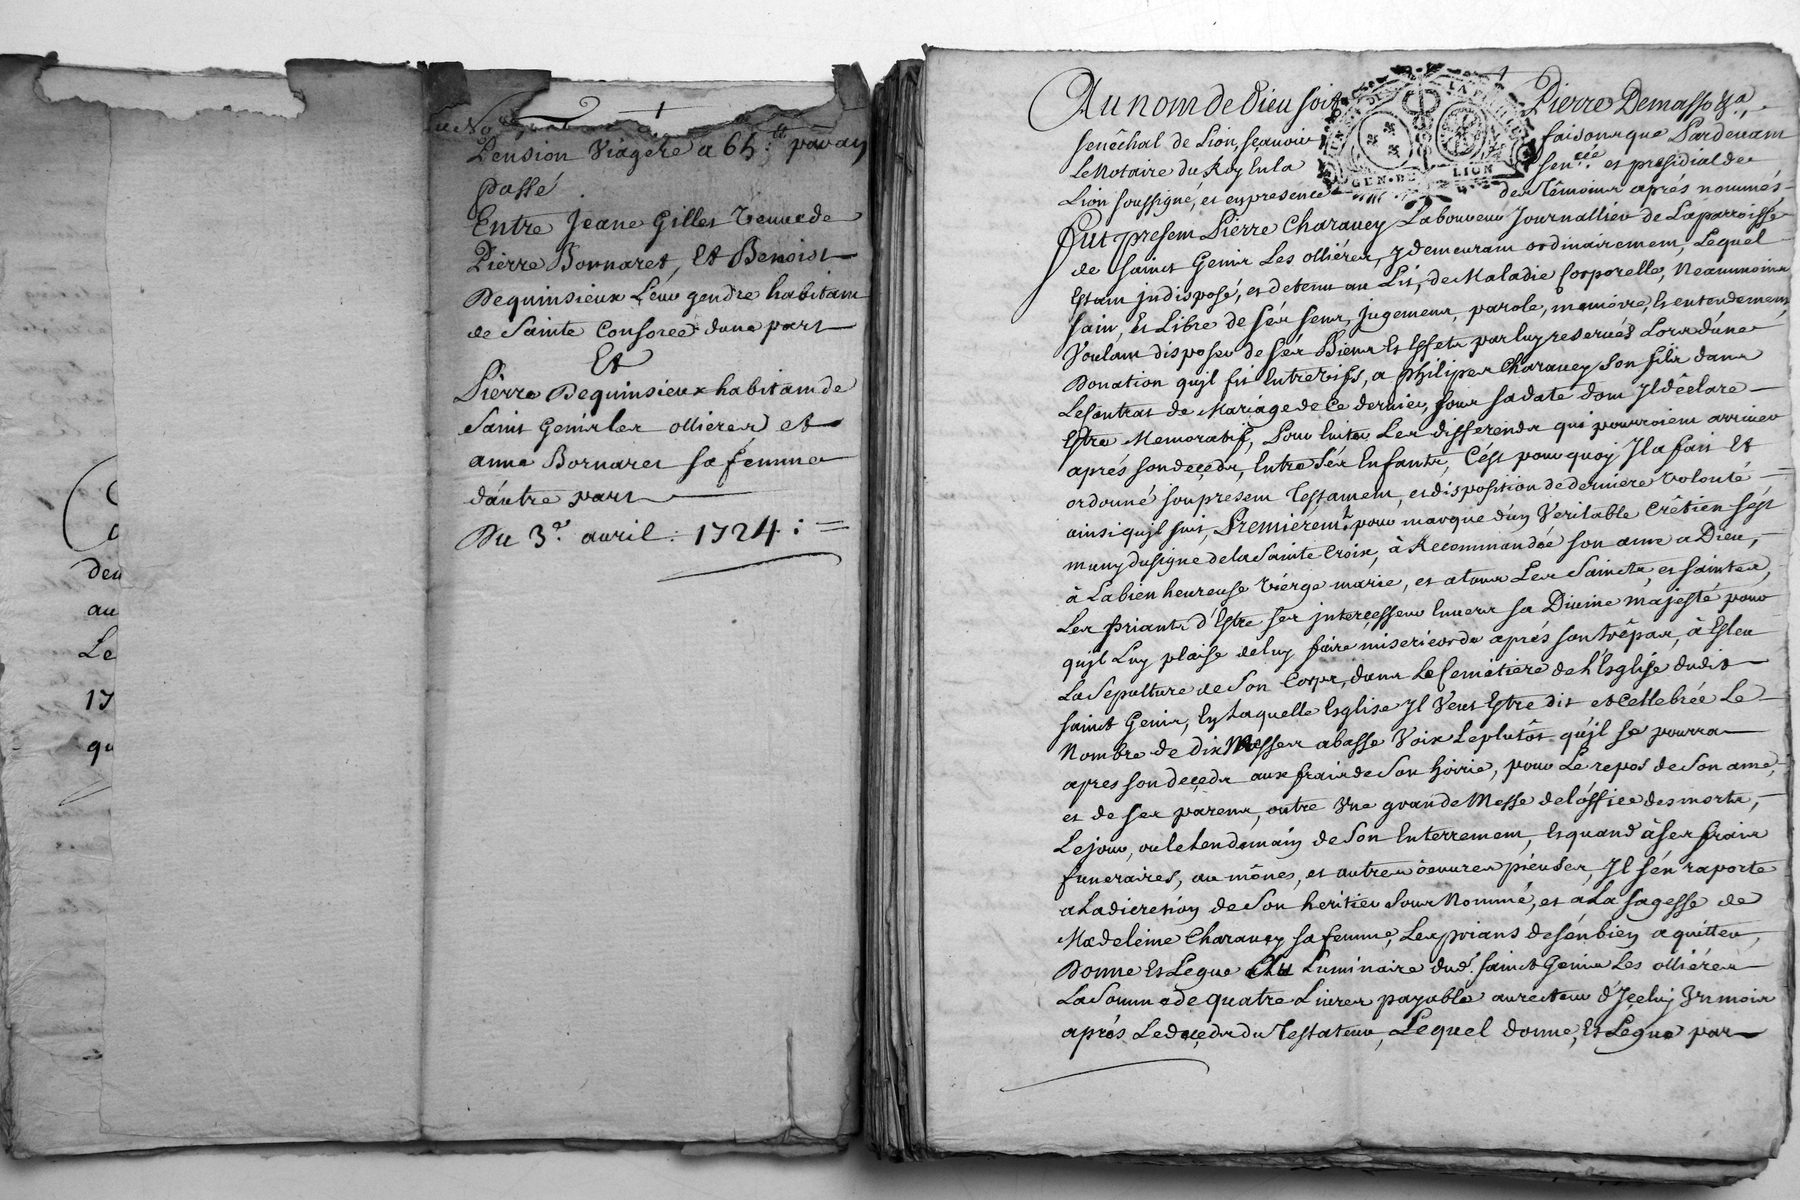 Pension Viagere a 65.tt par an
Passé
Entre Jeane Gilles Veuve de
Pierre Bornaret, Et Benoist
Dequinsieux Leur gendre habitant
de Sainte Consorce dune part
Et
Pierre Dequinsieux habitant de
Saint Genis les ollieres et
anne Bornaret sa femme
dáutre part
Du 3.e avril : 1724 : =
deu
au
Le
17
qu
Au nom de Dieu soit Pierre Demasso
senêchal de Lion, sçavoir faisons que Pardevant
Le Notaire du Roy en la sen.cée et presidial de
Lion soussigné, et en presence des Têmoins aprés nommés
fut present Pierre Charavey Laboureur Journallier de La parroisse
de Sainct Genis Les ollières, y demeurant ordinairement, Lequel
Estant jndisposé, et detenu au Lit, de Maladie Corporelle, Neanmoins
sain, Et Libre de sés sens, jugement, parole, memoire, Et entendement
Voulant disposer de sés Biens Et Effets par luy reservés Lors d'une
Donation qujl fit Entrevifs, a philipes Charavey son fils dans
Le Contrat de Mariage de Ce dernier, sous sa date dont Jl dêclare
Estre Memoratif, Pour Eviter Les differends qui pourroient arriver
aprés son deçeds, Entre sés Enfants, C'est pourquoy Jl a fait Et
ordonné son present Testament, et disposition de derniere volonté
ainsi qujl suit, Premierem.t pour marque d'un Veritable Crêtien s'est
muny du signe de la Sainte Croix, à Recommandée son ame a Dieu,
à La bien heureuse Viérge marie, et a tous Les Saincts, et saintes,
Les priants d'Estre ses jntercesseur Envers sa Divine majesté pour
qujl Luy plaise de luy faire misericorde aprés son trêpas, à Esleu
La Sepulture de Son Corps, dans Le Cemetiere de l'Esglise dudit
saint Genis, En Laquelle Esglise Jl Veut Estre dit et Cellebrée Le
Nombre de dix Messes a basse Voix Le plutôt qu'jl se pourra
apres son deçeds aux frais de Son hoirie, pour Le repos de Son ame,
et de ses parens, outre Vne grande Messe de l'óffice des morts,
Le jour, ou le Lendemain de Son Enterrement, Et quand à ses frais
funeraires, aumônes, et autres oeuvres pieuses, Jl s'én raporte
a La dicretion de Son heritier Sous Nommé, et à La sagesse de
Madeleine Charavey sa femme, Les prians de s'én bien aquitter,
Donne Et Legue Au Luminaire dud.t Sainct Genis Les ollières
La Somme de quatre Livres payable au recteur d'Jceluy Vn mois
aprés Le deçeds du Testateur, Lequel donne, Et Legue par